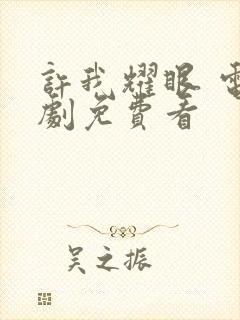 許我耀眼 電
劇免費看
吳之振